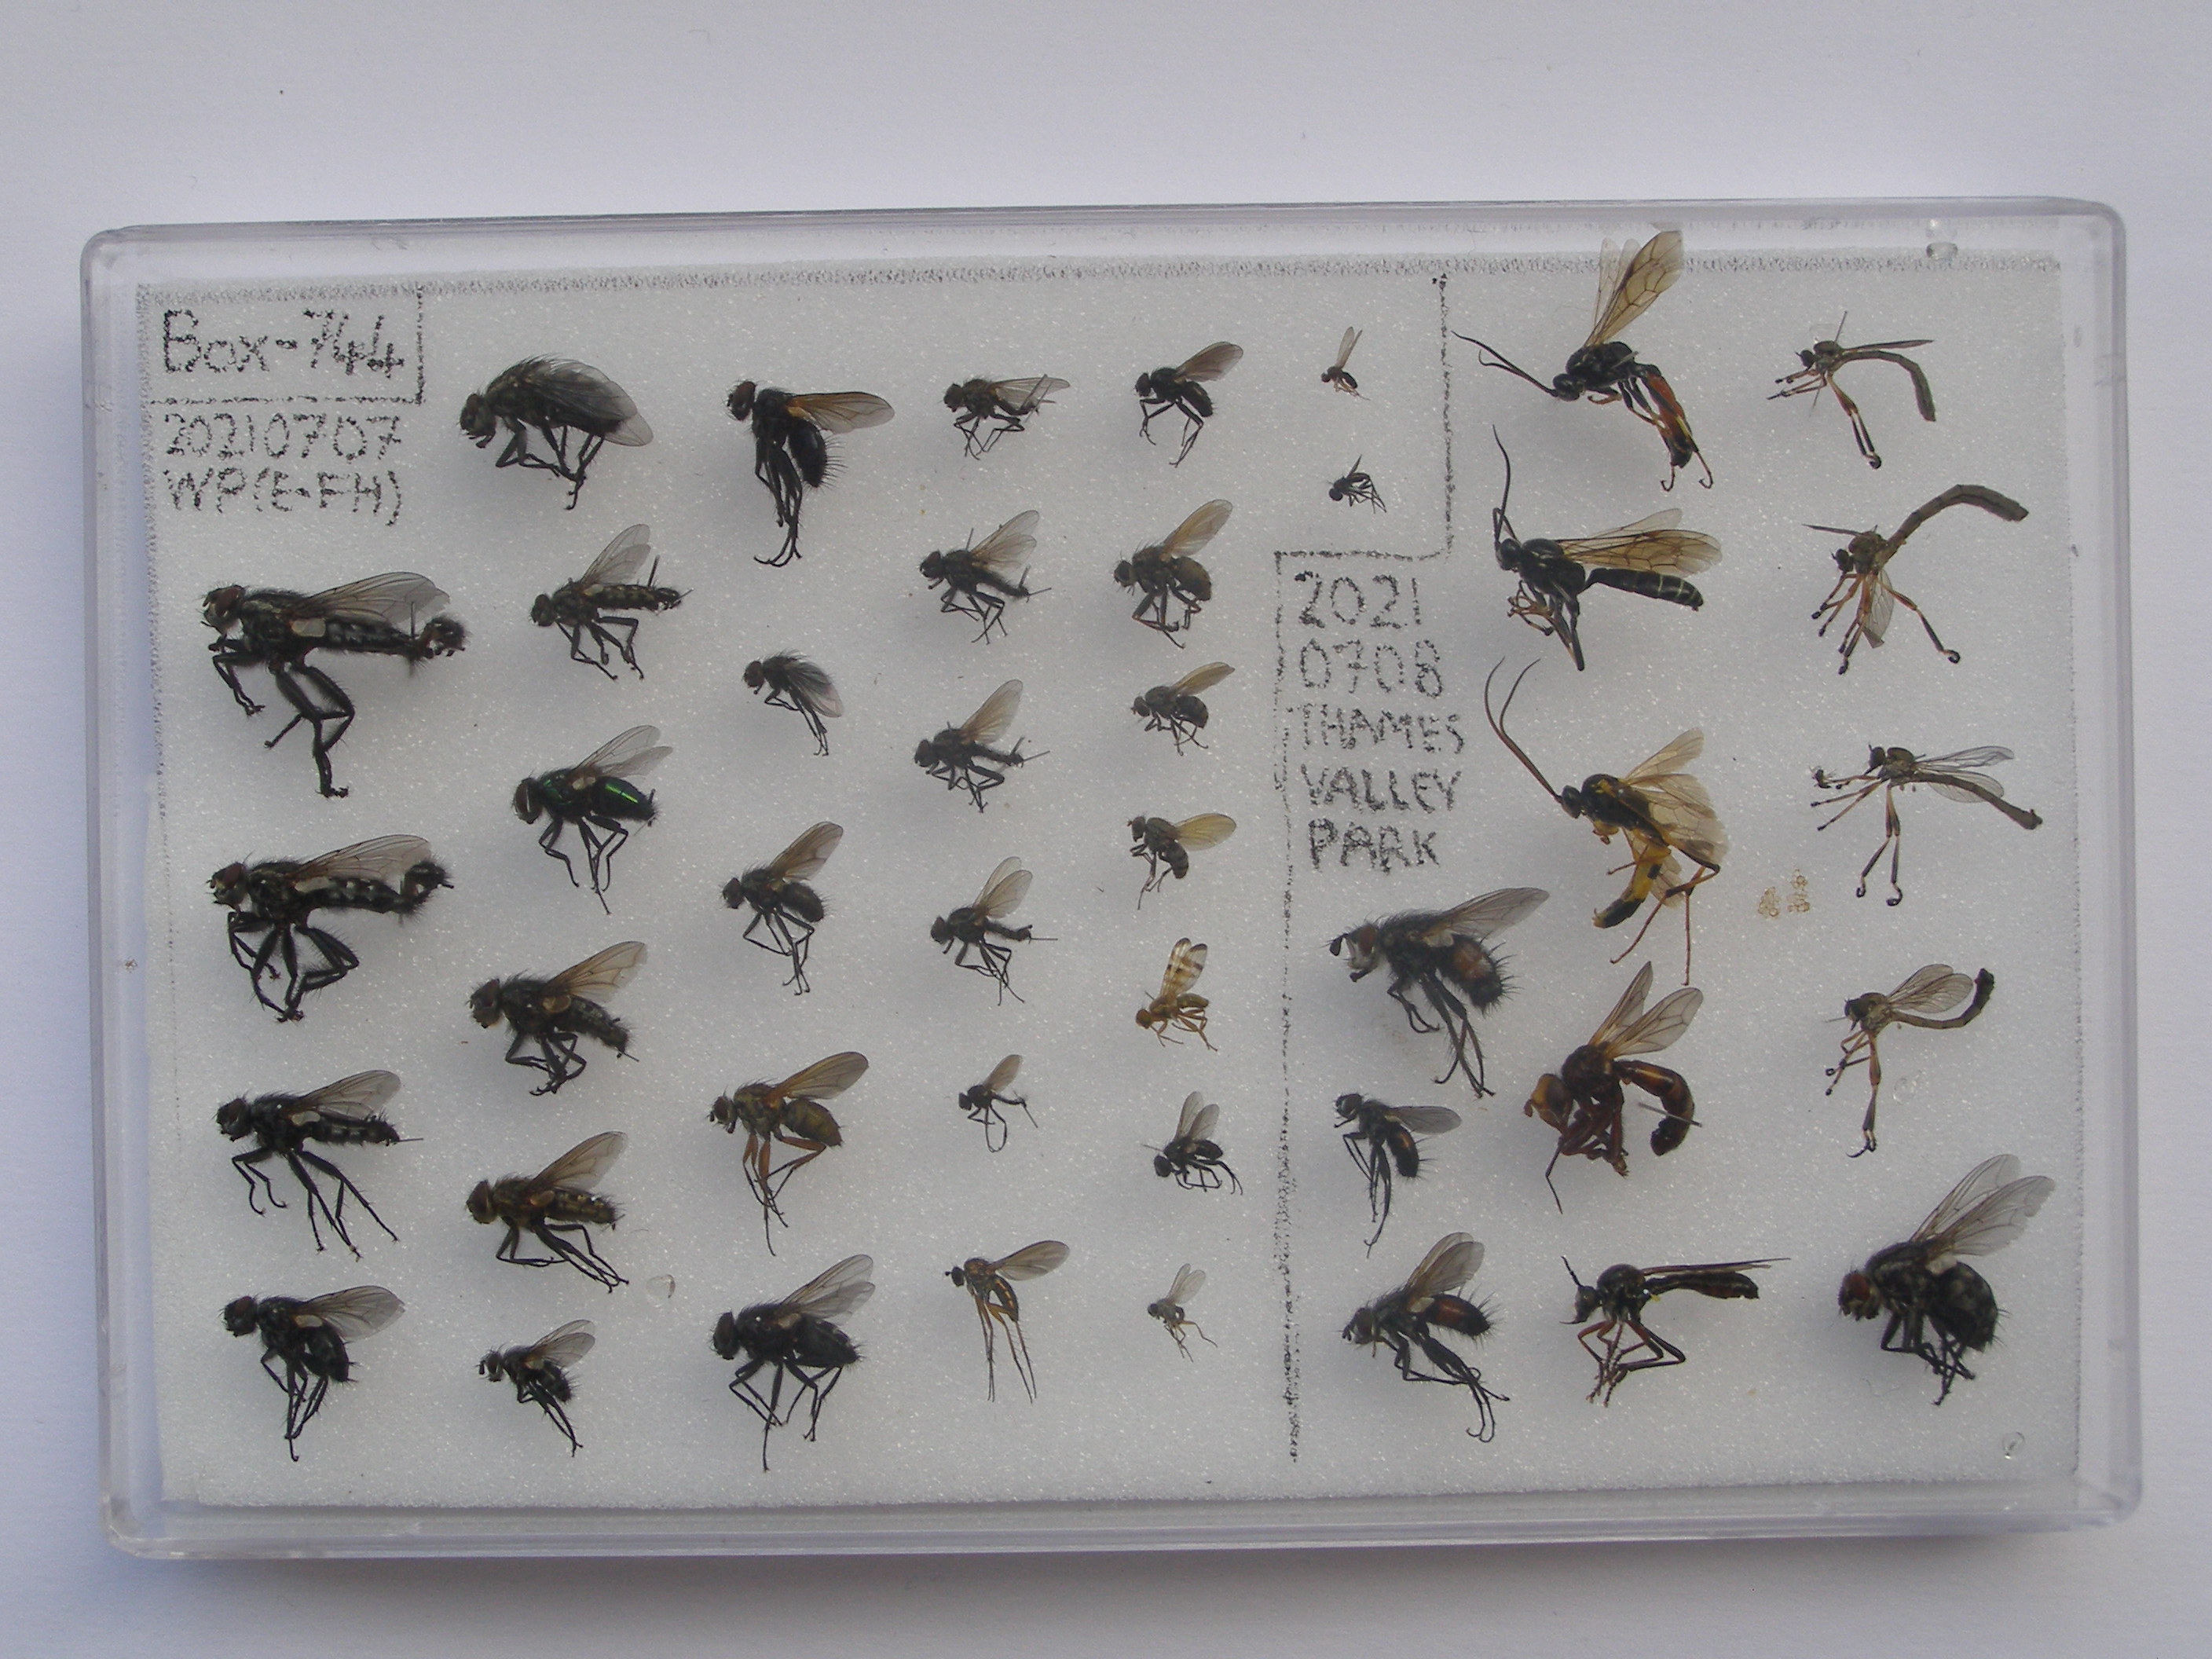 Box-744
20210707
WP(E-FH)
2021
0708
THAMES
VALLEY
PARK